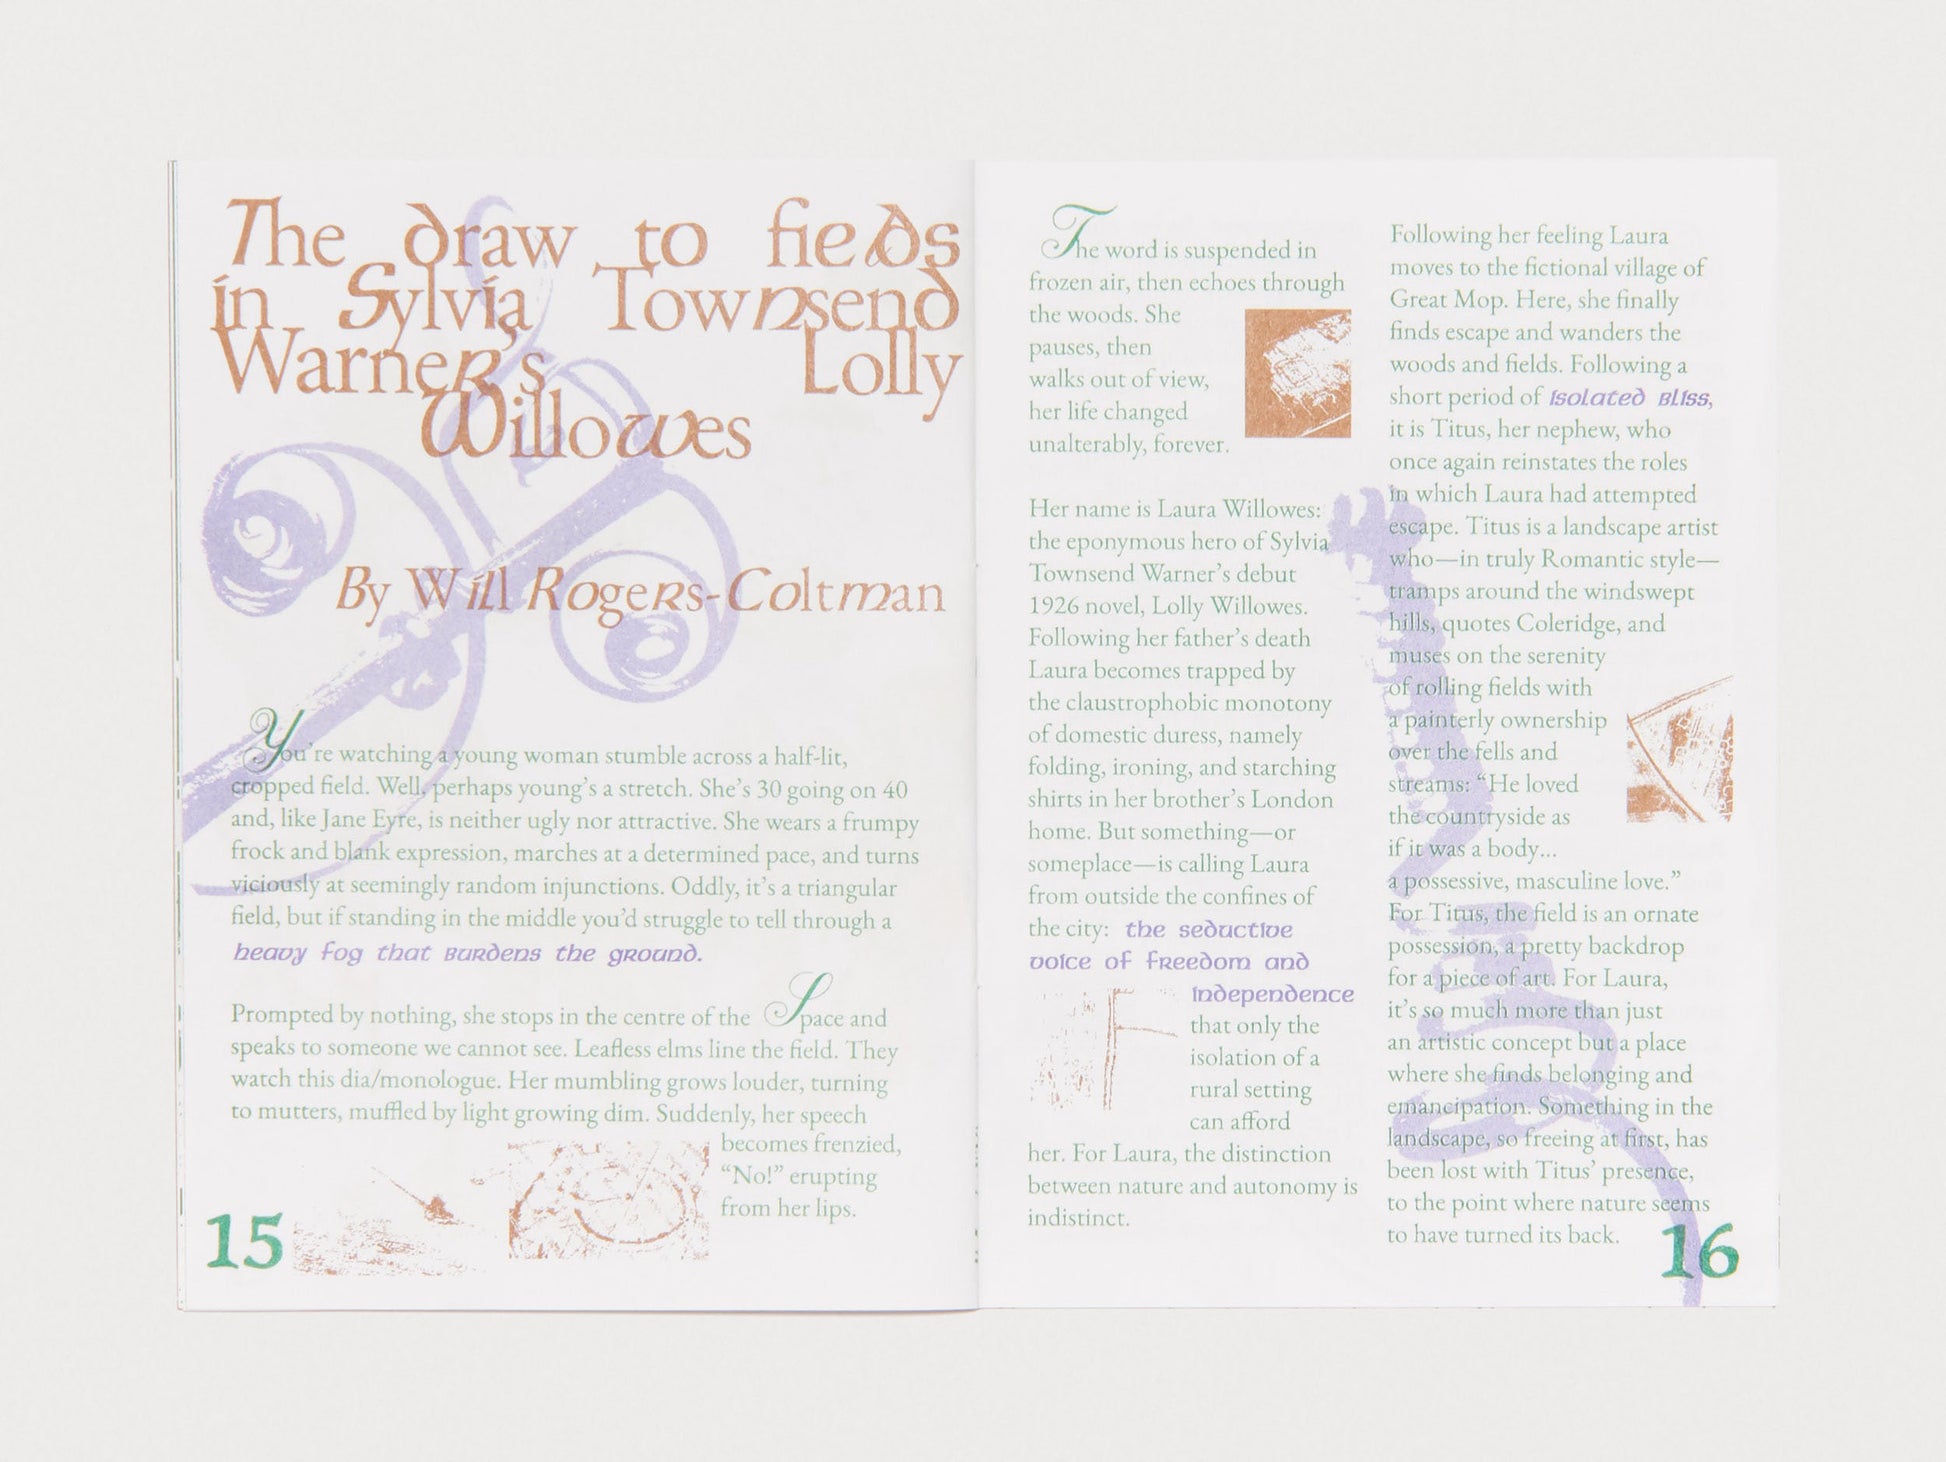 The draw to fieds
in Sylvia Townsend
Warner's Lolly
Willowes
By Will Rogers-Coltman
You're watching a young woman stumble across a half-lit,
cropped field. Well, perhaps young's a stretch. She's 30 going on 40
and, like Jane Eyre, is neither ugly nor attractive. She wears a frumpy
frock and blank expression, marches at a determined pace, and turns
viciously at seemingly random injunctions. Oddly, it's a triangular
field, but if standing in the middle you'd struggle to tell through a
heavy fog that burdens the ground.
Prompted by nothing, she stops in the centre of the Space and
speaks to someone we cannot see. Leafless elms line the field. They
watch this dia/monologue. Her mumbling grows louder, turning
to mutters, muffled by light growing dim. Suddenly, her speech
becomes frenzied,
“No!” erupting
from her lips.
15
The word is suspended in
frozen air, then echoes through
the woods. She
pauses, then
walks out of view,
her life changed
unalterably, forever.
Her name is Laura Willowes:
the eponymous hero of Sylvia
Townsend Warner's debut
1926 novel, Lolly Willowes.
Following her father's death
Laura becomes trapped by
the claustrophobic monotony
of domestic duress, namely
folding, ironing, and starching
shirts in her brother's London
home. But something—or
someplace—is calling Laura
from outside the confines of
the city: the seductive
voice of freedom and
independence
that only the
isolation of a
rural setting
can afford
her. For Laura, the distinction
between nature and autonomy is
indistinct.
Following her feeling Laura
moves to the fictional village of
Great Mop. Here, she finally
finds escape and wanders the
woods and fields. Following a
short period of isolated bliss,
it is Titus, her nephew, who
once again reinstates the roles
in which Laura had attempted
escape. Titus is a landscape artist
who—in truly Romantic style—
tramps around the windswept
hills, quotes Coleridge, and
muses on the serenity
of rolling fields with
a painterly ownership
over the fells and
streams: “He loved
the countryside as
if it was a body...
a possessive, masculine love.”
For Titus, the field is an ornate
possession, a pretty backdrop
for a piece of art. For Laura,
it's so much more than just
an artistic concept but a place
where she finds belonging and
emancipation. Something in the
landscape, so freeing at first, has
been lost with Titus' presence,
to the point where nature seems
to have turned its back.
16